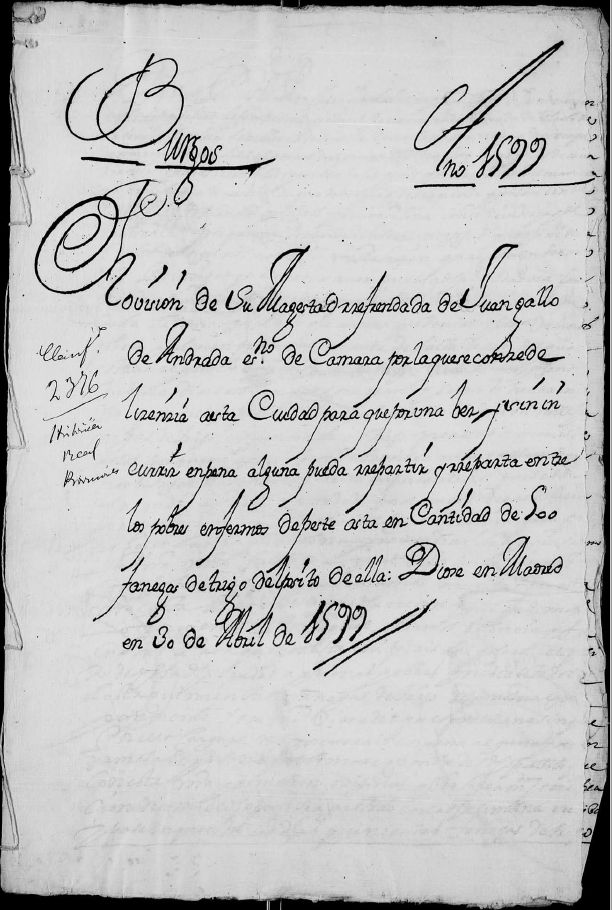 Burgos
Año 1599
Provision de Su Magestad rrefrendada de Juan gallo
de Andrada es.no de Camara por la que se concede
lizenzia a esta Ciudad para que por una bez y sin in
currir en pena alguna pueda rrepartir y rreparta entre
los pobres enfermos de peste asta en Cantidad de 500
fanegas de trigo del posito de ella: Diose en Madrid
en 30 de Abril de 1599
2376
Real